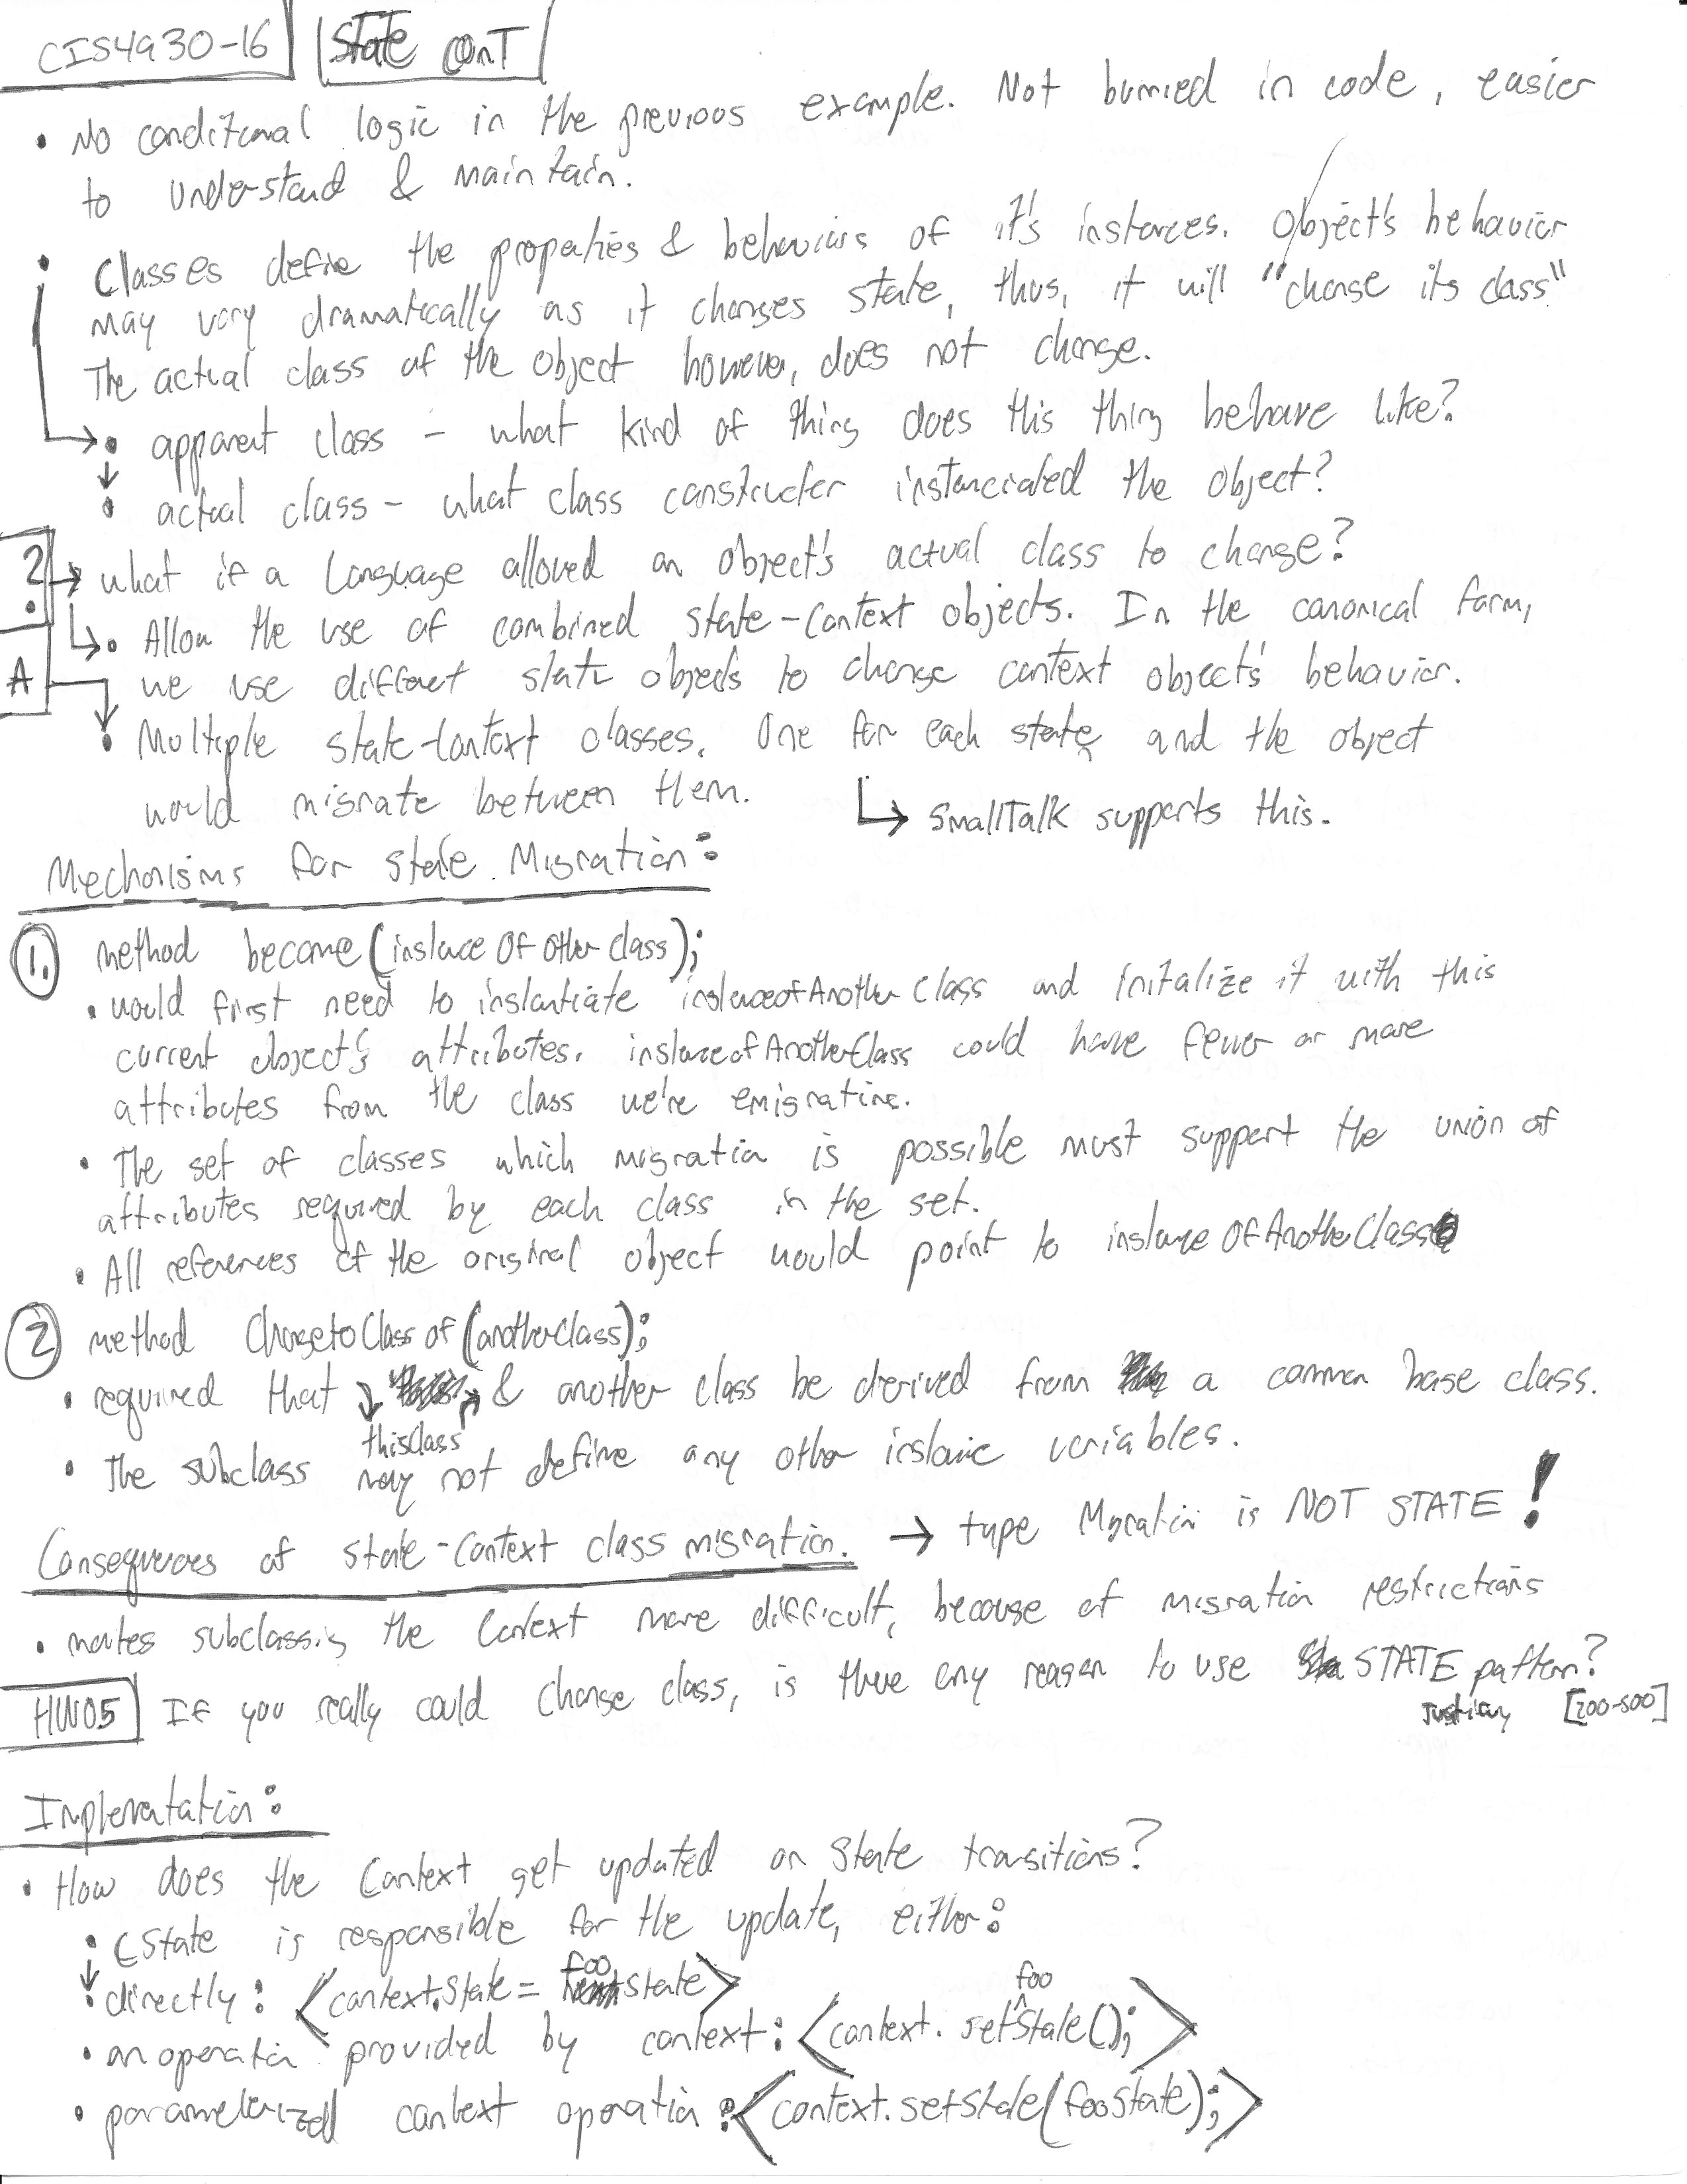 CIS4930-16 State cont
• No conditional logic in the previous example. Not burried in code, easier
to understand & maintain.
• Classes define the properties & behaviors of it's instances. Object's behavior
may vary dramatically as it changes state, thus, it will "change its class"
The actual class of the object however, does not change.
• apparent class - what kind of thing does this thing behave like?
• actual class - what class constructer instanciated the object?
? → what if a language allowed an object's actual class to change?
• Allow the use of combined state-context objects. In the canonical form,
A we use different state objects to change context object's behavior.
• Multiple state-context classes. One for each state, and the object
would migrate between them. ↳ SmallTalk supports this.
Mechanisms for state Migration:
1. method become(instance Of other class);
• would first need to instantiate instanceofAnotherClass and initalize it with this
current object's attributes. instanceofAnotherClass could have fewer or more
attributes from the class we're emigrating.
• The set of classes which migration is possible must support the union of
attributes required by each class in the set.
• All references of the original object would point to instance Of AnotherClass
2 method ChangetoClassof(anotherClass);
• required that & another class be derived from a common base class.
thisClass
• The subclass may not define any other instance variables.
Consequences of state-context class migration. → type Migration is NOT STATE!
• makes subclassing the Context more difficult, because of migration restrictions
HW05 If you really could change class, is there any reason to use STATE pattern?
Justify [200-500]
Implementation:
• How does the Context get updated on State transitions?
• CState is responsible for the update, either:
foo
• directly: <context.state = State>
foo
• an operation provided by context: <context. setState();>
• parameterized context operation: <context.setState(fooState);>